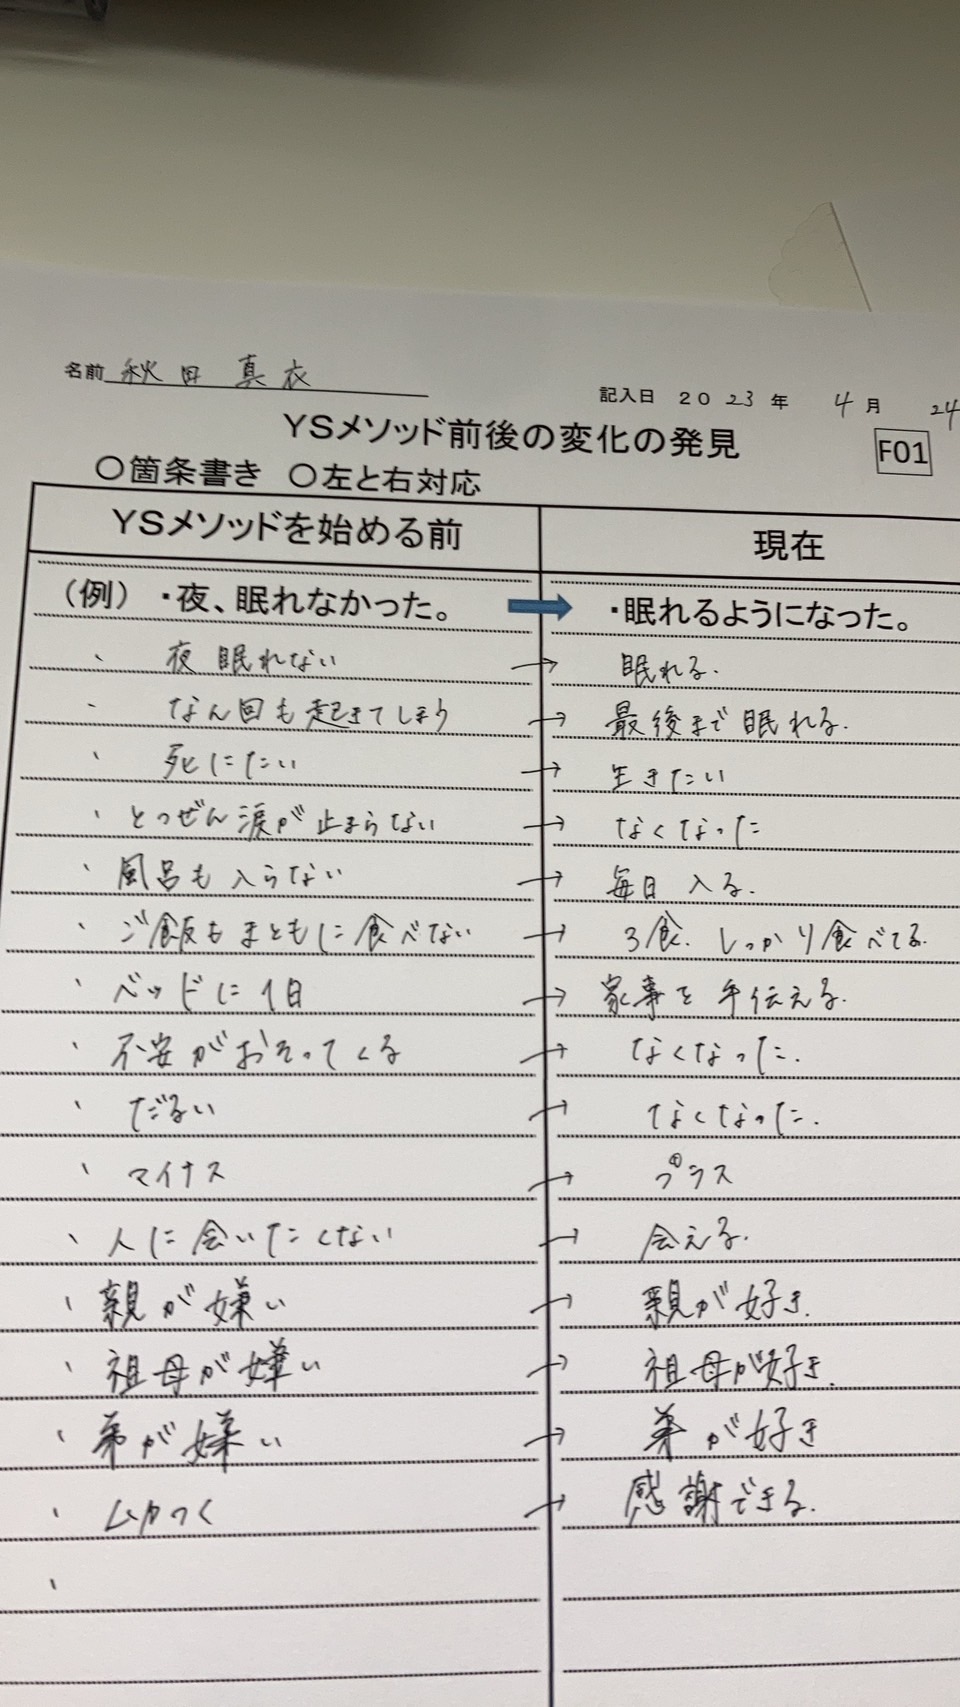 名前 秋田 真衣
記入日 2023年 4月 24
YSメソッド前後の変化の発見
F01
○箇条書き ○左と右対応
YSメソッドを始める前 現在
(例)・夜、眠れなかった。 ➡ ・眠れるようになった。
・ 夜 眠れない → 眠れる.
・ なん回も起きてしまう → 最後まで眠れる.
・ 死にたい → 生きたい
・ とつぜん涙が止まらない → なくなった
・ 風呂も入らない → 毎日 入る.
・ ご飯もまともに食べない → 3食.しっかり食べてる.
・ ベッドに1日 → 家事を手伝える.
・ 不安がおそってくる → なくなった.
・ だるい → なくなった.
・ マイナス → プラス
・ 人に会いたくない → 会える.
・ 親が嫌い → 親が好き.
・ 祖母が嫌い → 祖母が好き.
・ 弟が嫌い → 弟が好き
・ ムカつく → 感謝できる.
・